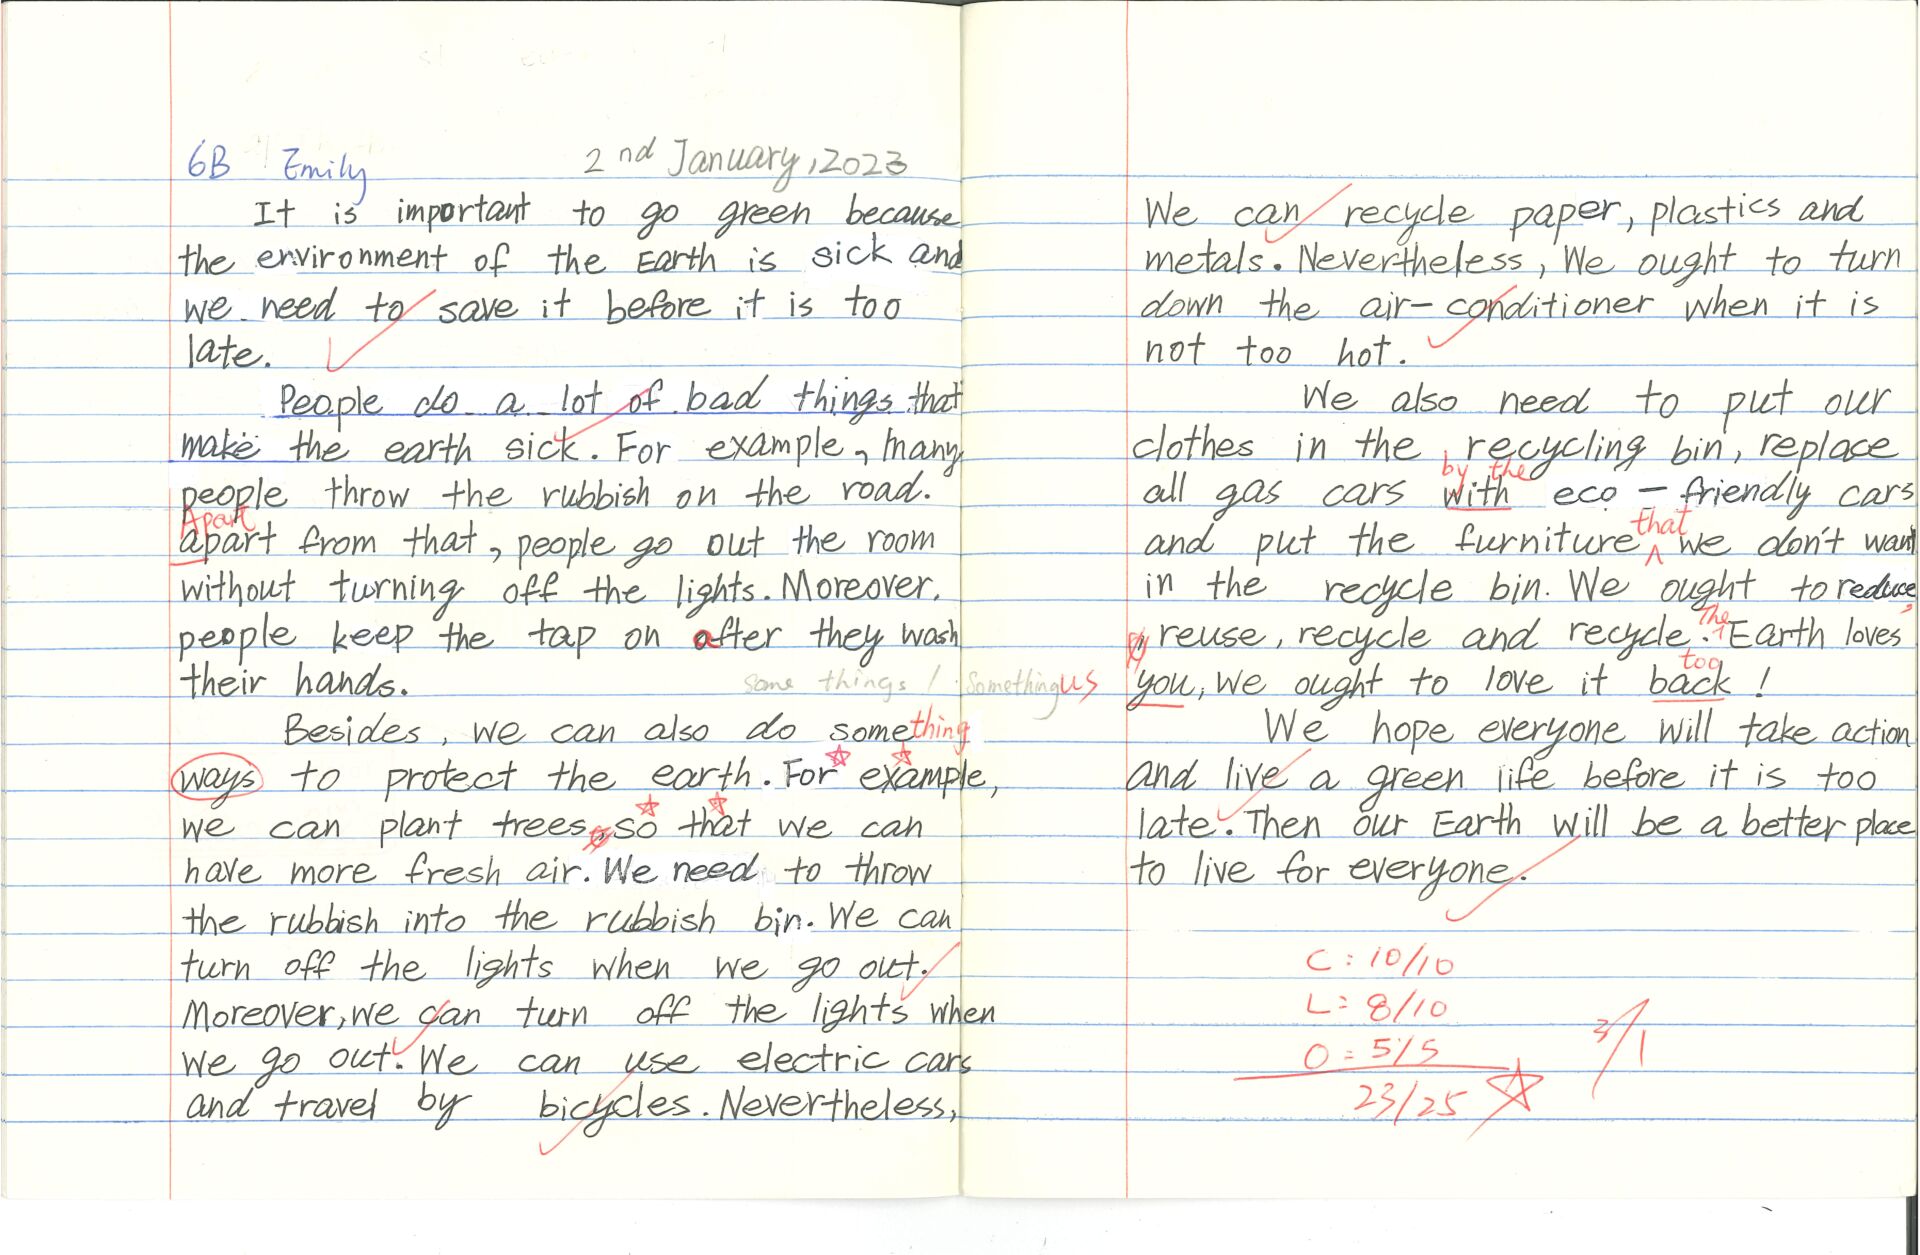 6B Emily 2nd January, 2023
It is important to go green because
the environment of the Earth is sick and
we need to save it before it is too
late.
People do a lot of bad things that
make the earth sick. For example, many
people throw the rubbish on the road.
Apart
apart from that, people go out the room
without turning off the lights. Moreover,
people keep the tap on after they wash
their hands.
some things / something
Besides, we can also do something
ways to protect the earth. For example,
we can plant trees, so that we can
have more fresh air. We need to throw
the rubbish into the rubbish bin. We can
turn off the lights when we go out.
Moreover, we can turn off the lights when
we go out. We can use electric cars
and travel by bicycles. Nevertheless,
We can recycle paper, plastics and
metals. Nevertheless, We ought to turn
down the air-conditioner when it is
not too hot.
We also need to put our
clothes in the recycling bin, replace
by the
all gas cars with eco-friendly cars
that
and put the furniture we don't want
in the recycle bin. We ought to reduce,
The
, reuse, recycle and recycle. Earth loves
us too
you, we ought to love it back!
We hope everyone will take action
and live a green life before it is too
late. Then our Earth will be a better place
to live for everyone.
C: 10/10
L: 8/10
O: 5/5
23/25
3/1